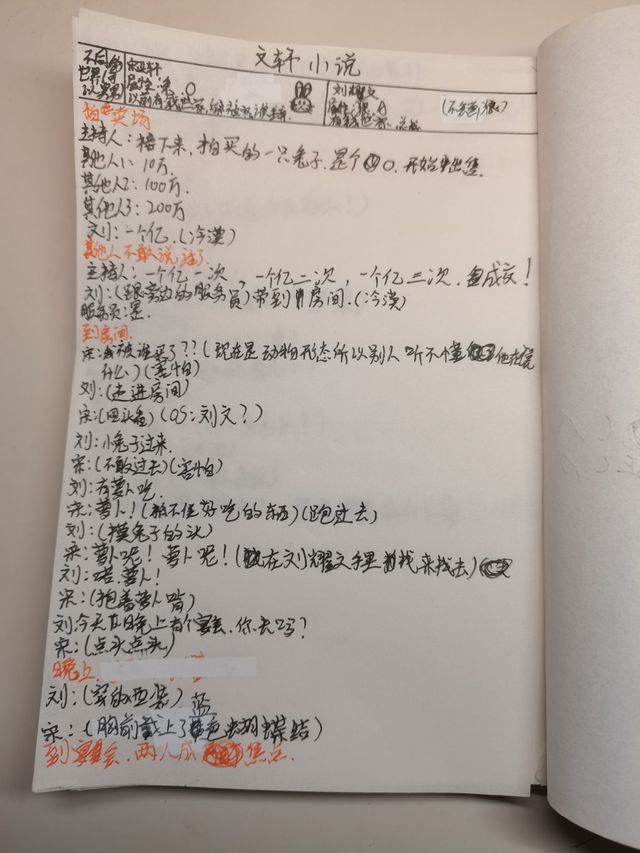 文轩小说
不同的世界(可以变回)
宋亚轩
属性:兔 O
以前有钱世家
刘耀文
属性:狼 A
有钱世家,总裁
(不会画狼)
拍卖场
主持人:接下来,拍买的一只兔子,是个O,开始出售.
其他人1:10万
其他人2:100万.
其他人3:200万
文刘:一个亿.(冷漠)
其他人不敢说话了
主持人:一个亿一次,一个亿二次,一个亿三次.成交!
刘:(跟旁边的服务员)带到房间.(冷漠)
服务员:是.
到房间.
宋:我被谁买了??(现在是动物形态所以别人听不懂他在说
什么)(害怕)
刘:(走进房间)
宋:(回头看)(OS:刘文?)
刘:小兔子过来.
宋:(不敢过去)(害怕)
刘:有萝卜吃.
宋:萝卜!(抵不住好吃的东西)(跑过去)
刘:(摸兔子的头)
宋:萝卜呢!萝卜呢!(在刘耀文手里找来找去)
刘:喏.萝卜!
宋:(抱着萝卜啃)
刘:今天晚上有个宴会.你去吗?
宋:(点头点头)
晚上.
刘:(穿的西装)
宋:(胸前戴上了蓝色蝴蝶结)
到宴会.两人成焦点.